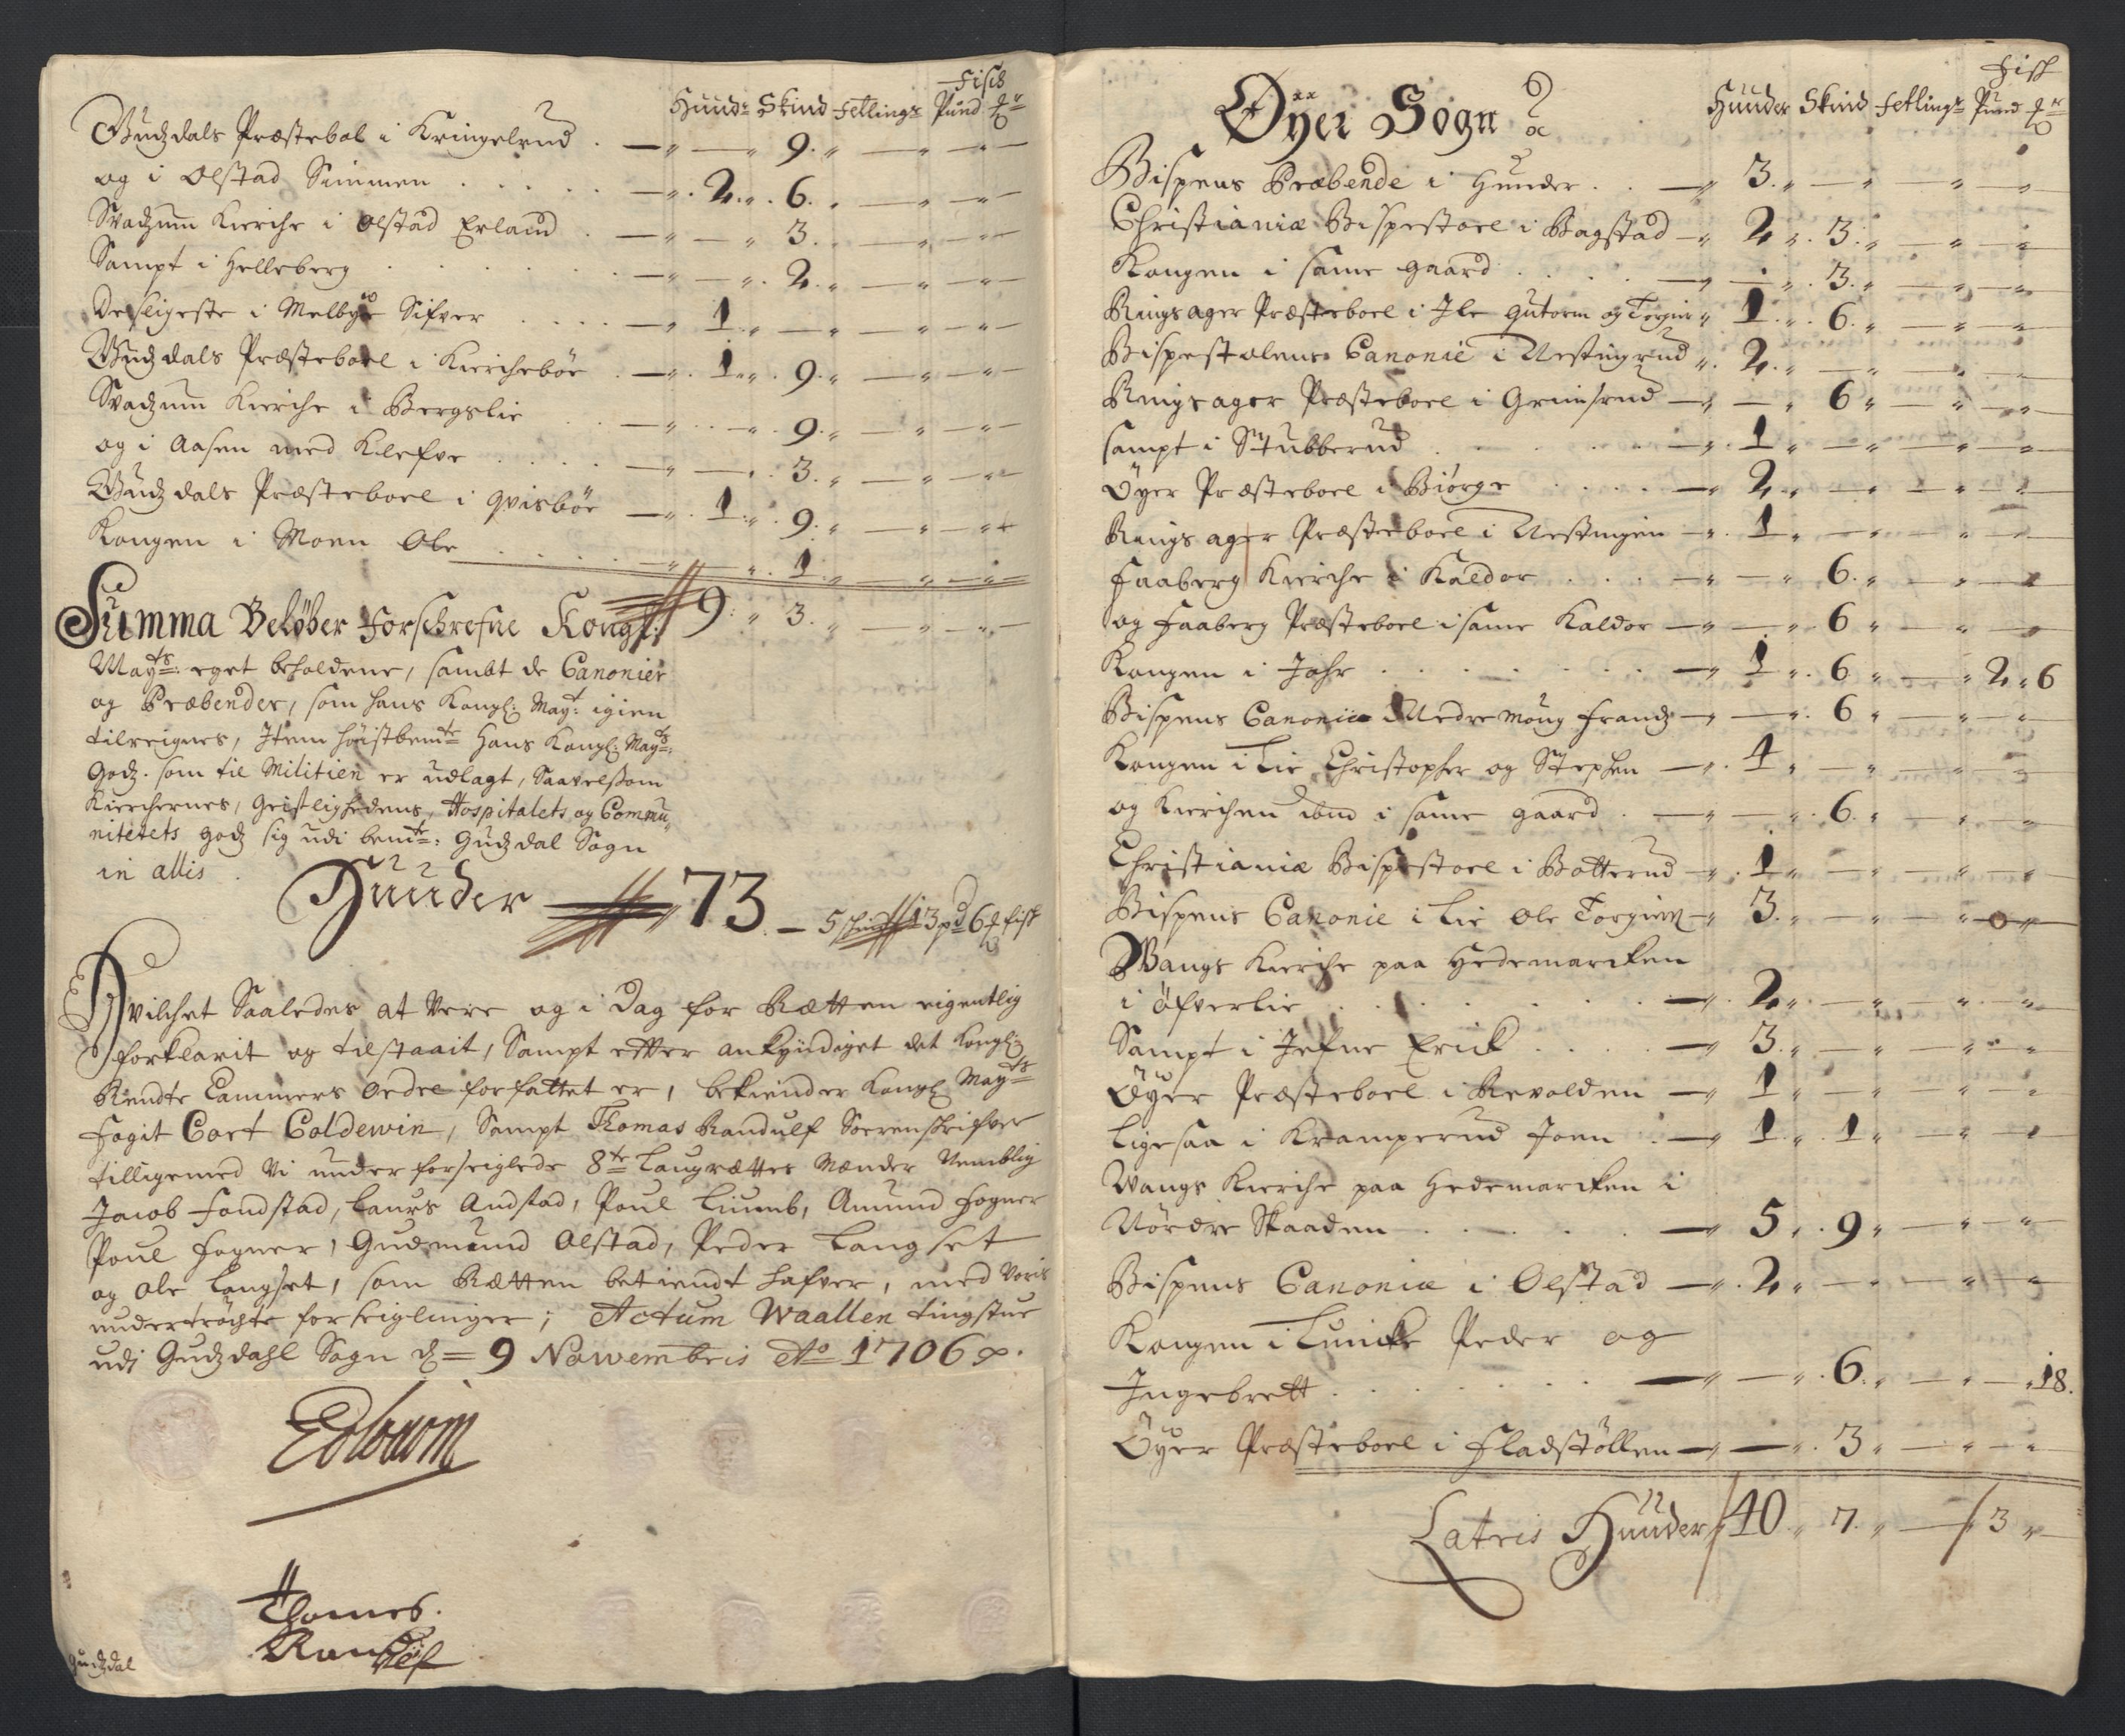 Fisch
Hund: Skind Fetling: Pund
Gudzdals Præstebol i Kringelrud . — 9. —
og i Olstad Simmen . . . . . 2. 6. —
Svadzum Kierche i Olstad Erland . — 3. —
Sampt i Helleberg . . . . . — 2. —
Desligeste i Melbye Sifver . . . . 1. —
Gudzdals Præsteboel i Kierchebøe . 1. 9. —
Svadzum Kierche i Bergslie . . — 9. —
og i Aasen med Klefve . . . . — 3. —
Gudzdals Præsteboel i Qvisbøe — 1. 9. —
Kongen i Moen Ole . . . . . — 1. —
Summa Beløber Forschrefne Kongl: 9. 3. —
Mayts: eget beholdene, sambt de Canonier
og Præbender, som hans Kongl: Mayt: igien
tilreignes, Item høistbemte Hans Kongl: Mayts:
Godz. som til Militien er udlagt, Saavelsom
Kierchernes, Geistlighedens, Hospitalets og Commu„
nitetets godz sig udi bemte: Gudzdal Sogn
in allis .
Huuder — 73 — 5 skind 13 pd 6 fisk
Hvilchet Saaledes at Vere og i Dag for Rætten eigentlig
forklarit og tilstaait, Sampt efter ankyndiget det Kongl:
Rendte Cammers Ordre forfattet er, bekiender Kongl Mayts
Fogit Cort Coldewin, Sampt Thomas Randulf Sorenskrifver
tilligemed Vi underforseiglede 8te Laugrættes Mænder Nemblig
Jacob Fondstad, Laurs Andstad, Poul Liumb, Amund Fogner
Poul Fogner, Gudmund Olstad, Peder Langset
og Ole Langset, som Rætten betiendt hafver, med Voris
undertrøchte forseiglinger; Actum Waallen tingstue
udj Gudzdahl Sogn d= 9 Novembris Ao 1706.
Thomes.
Randulf
Gudzdal
Øyer Sogn
Fisk
Huuder Skind Fetling: Pund
Bispens Præbende i Hunder . . — 3. —
Christianiæ Bispestoel i Bagstad — 2. 3. —
Kongen i same gaard . . . . — 3. —
Ringsager Præsteboel i Jle Gutorm og Torgier 1. 6. —
Bispestolens Canonie i Nestingrud 2. —
Ringsager Præsteboel i Grimsrud — 6 —
sampt i Stubberud . . . . . 1. —
Öyer Præsteboel i Biørge . . . . — 2. —
Ringsager Præsteboel i Nestingen — 1. —
Faaberg Kierche i Kaldor . . . — 6. —
og Faaberg Præsteboel i same Kaldor — 6 —
Kongen i Johr . . . . . . — 1. 6 — 2. 6
Bispens Canonie Nedre Moug Frandz — 6 —
Kongen i Lie Christopher og Stephen — 4 —
og Kierchen ibm i same gaard . — 6. —
Christianiæ Bispestoel i Botterud — 1. —
Bispens Canonie i Lie Ole Torgier — 3. —
Wangs Kierche paa Hedemarcken
i Øfverlie . . . . . . — 2. —
Sampt i Jefne Erick . . . . — 3. —
Øyer Præsteboel i Revolden — 1 —
Ligesaa i Kramperud Joen . — 1. 1. —
Wangs Kierche paa Hedemarcken i
Nørdre Skaaden . . . . . — 5. 9. —
Bispens Canonie i Olstad — 2. —
Kongen i Luncke Peder og
Ingebrett . . . . . . — 6. — 18.
Öyer Præsteboel i Fladstøllen — 3 —
Latris Huuder 40. 7. — 3. —